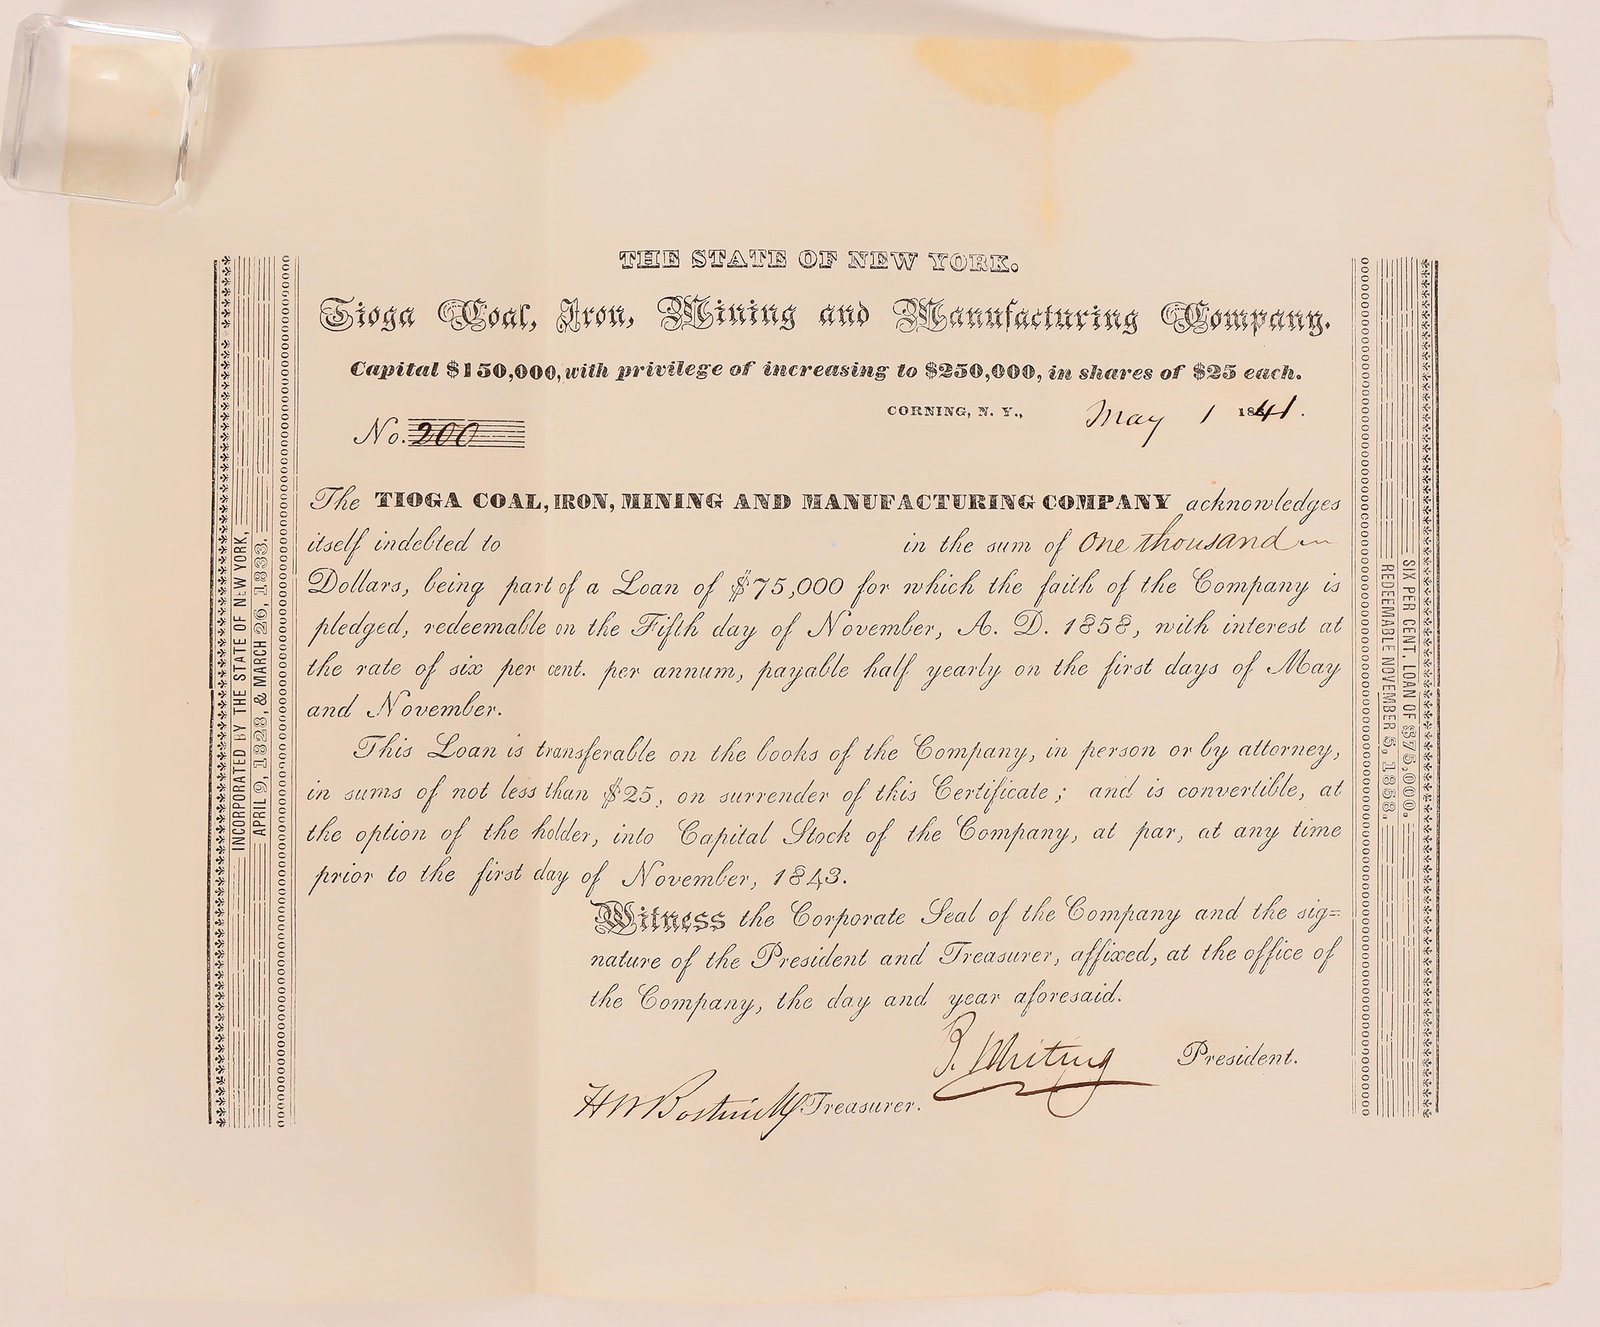 THE STATE OF NEW YORK.
Tioga Coal, Iron, Mining and Manufacturing Company.
Capital $150,000, with privilege of increasing to $250,000, in shares of $25 each.
CORNING, N. Y., May 1 1841.
No. 200
The TIOGA COAL, IRON, MINING AND MANUFACTURING COMPANY acknowledges
itself indebted to in the sum of One thousand
Dollars, being part of a Loan of $75,000 for which the faith of the Company is
pledged, redeemable on the Fifth day of November, A. D. 1858, with interest at
the rate of six per cent. per annum, payable half yearly on the first days of May
and November.
This Loan is transferable on the books of the Company, in person or by attorney,
in sums of not less than $25, on surrender of this Certificate; and is convertible, at
the option of the holder, into Capital Stock of the Company, at par, at any time
prior to the first day of November, 1843.
Witness the Corporate Seal of the Company and the sig=
nature of the President and Treasurer, affixed, at the office of
the Company, the day and year aforesaid.
Whiting President.
H W Bostwick Treasurer.
INCORPORATED BY THE STATE OF NEW YORK,
APRIL 9, 1828, & MARCH 26, 1833.
SIX PER CENT. LOAN OF $75,000.
REDEEMABLE NOVEMBER 5, 1858.